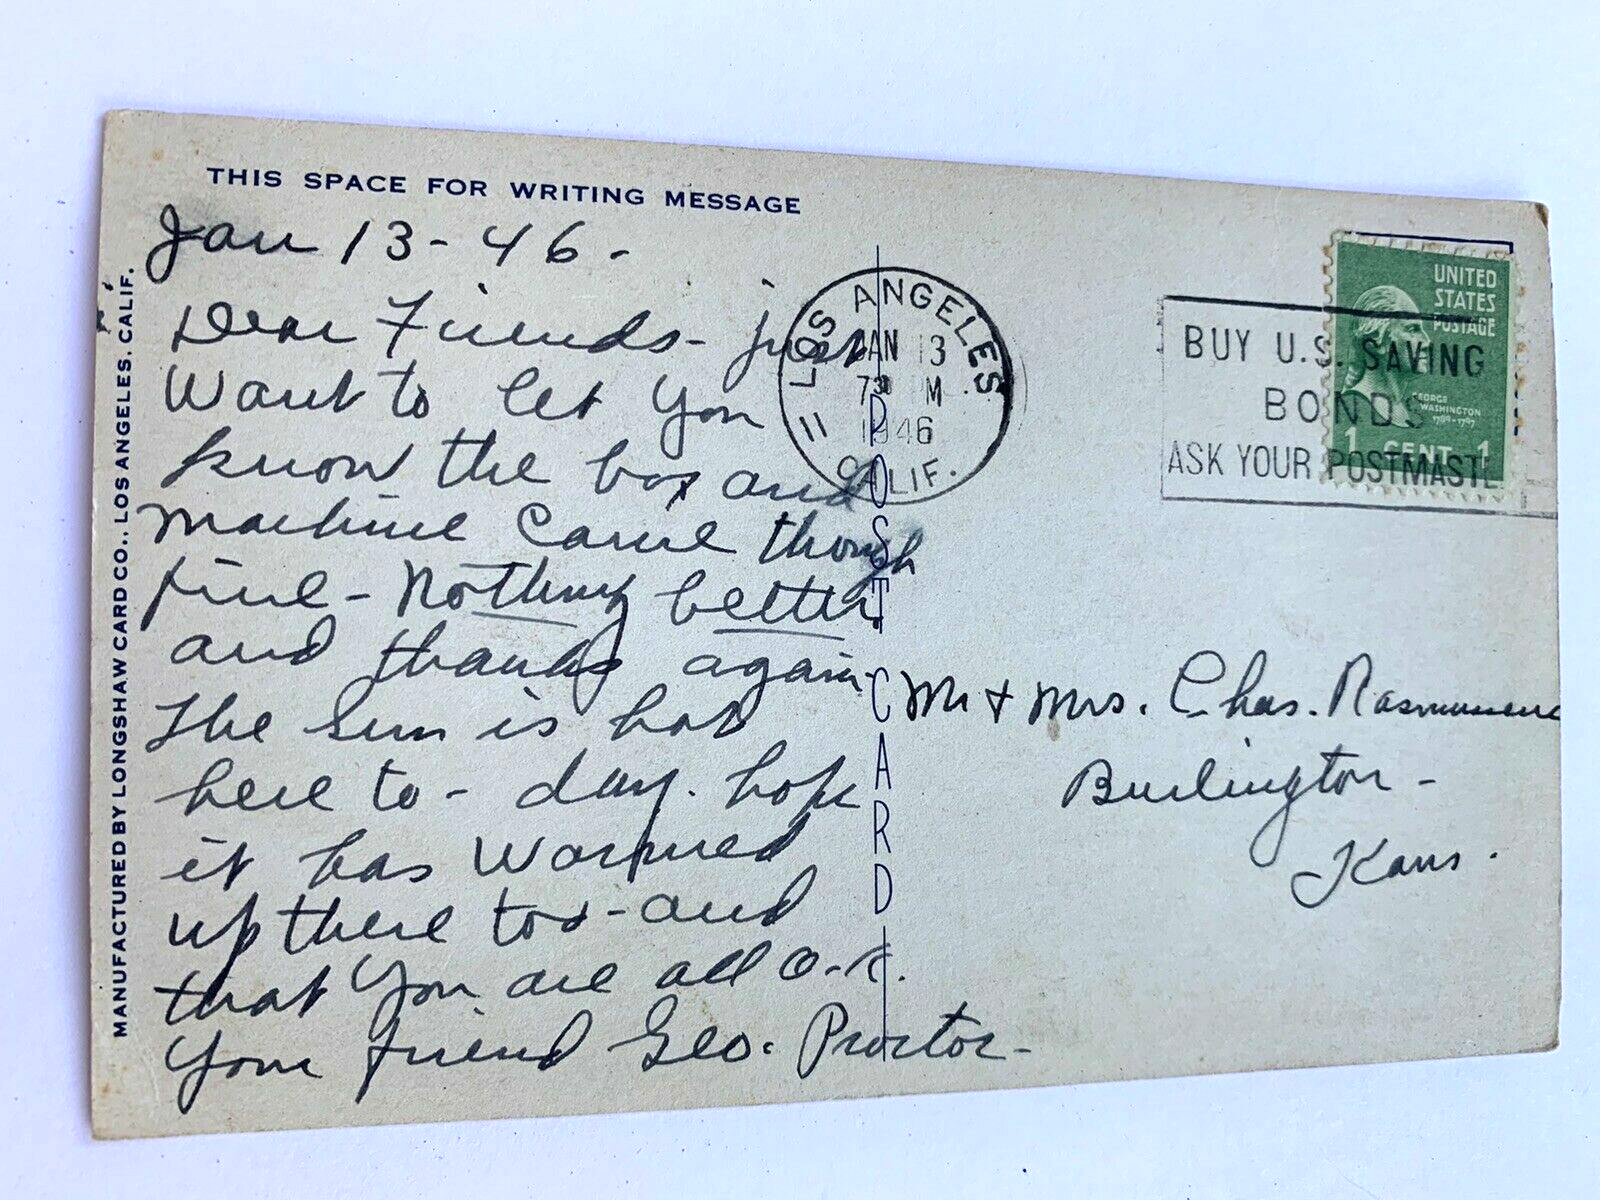 THIS SPACE FOR WRITING MESSAGE
Jan 13-46.
Dear Friends- just
Want to let you
know the box and
machine came though
fine- Nothing better.
and thanks again-
The Sun is hot
here to-day. hope
it has warmed
up there too- and
that you are all O.K.
Your friend Geo. Proctor-
MANUFACTURED BY LONGSHAW CARD CO., LOS ANGELES, CALIF.
POST CARD
LOS ANGELES
JAN 13
730 PM
1946
CALIF.
BUY U.S. SAVING
BONDS
ASK YOUR POSTMASTE
UNITED
STATES
POSTAGE
GEORGE
WASHINGTON
1789-1797
1 CENT 1
Mr & Mrs. Chas. Rasmussen
Burlington-
Kans.